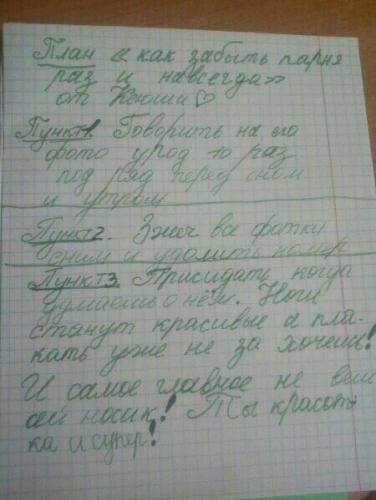 План « как забыть парня
раз и навсегда»
от Ксюши♡
Пункт1. Говорить на его
фото урод 10 раз
под ряд перед сном
и утром
Пункт2. Зжеч все фотки
сним и удолить номер
Пункт3. Присидать когда
думаешь о нём. Ноги
станут красивые а пла-
кать уже не за хочешь!
И самое главное не веш
ай носик! Ты красот-
ка и супер!